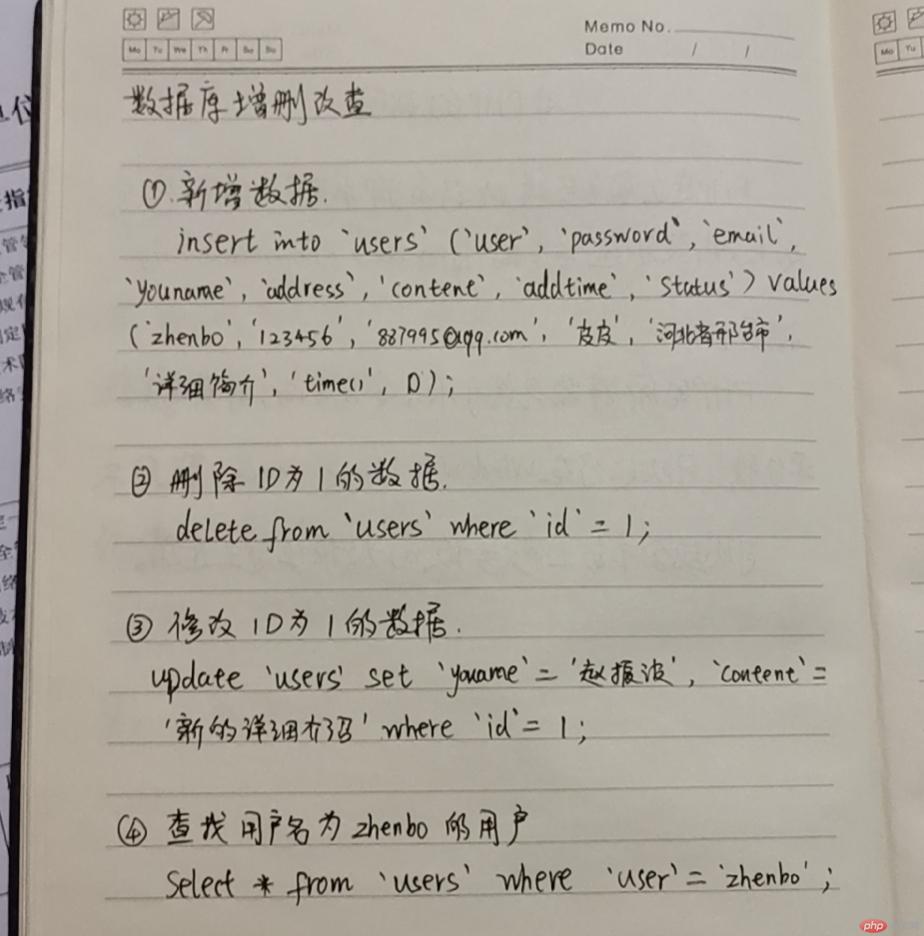 Memo No.
Mo Tu We Th Fr Sa Su
Date / /
数据库增删改查
①.新增数据.
insert into `users` (`user`, `password`, `email`,
`youname`, `address`, `content`, `addtime`, `status`) values
('zhenbo', '123456', '887995@qq.com', '皮皮', '河北省邢台市',
'详细简介', 'time()', 0);
② 删除ID为1的数据.
delete from `users` where `id` = 1;
③ 修改ID为1的数据.
update `users` set `youname` = '赵振波', `content` =
'新的详细介绍' where `id` = 1;
④ 查找用户名为zhenbo的用户
Select * from `users` where `user` = 'zhenbo';
php